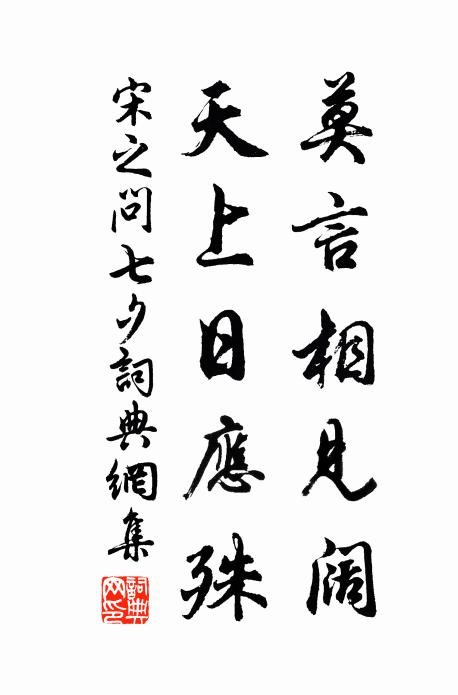 莫言相見闊
天上日應殊
宋之問七夕詞典網集
詞典网印